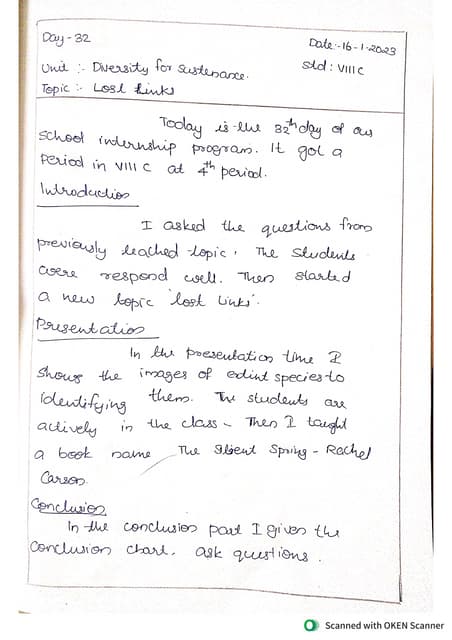 Day-32
Date:-16-1-2023
Unit :- Diversity for Sustenance.
Std : VIII C
Topic :- Lost Links
Today is the 32th day of our
school internship program. It got a
Period in VIII C at 4th period.
Introduction
I asked the questions from
previously teached topic. The students
were respond well. Then started
a new topic 'lost links'.
Presentation
In the presentation time I
shows the images of extint species to
identifying them. The students are
actively in the class. Then I taught
a book name The Silent Spring - Rachel
Carson.
Conclusion
In the conclusion part I given the
Conclusion chart. ask questions.
Scanned with OKEN Scanner